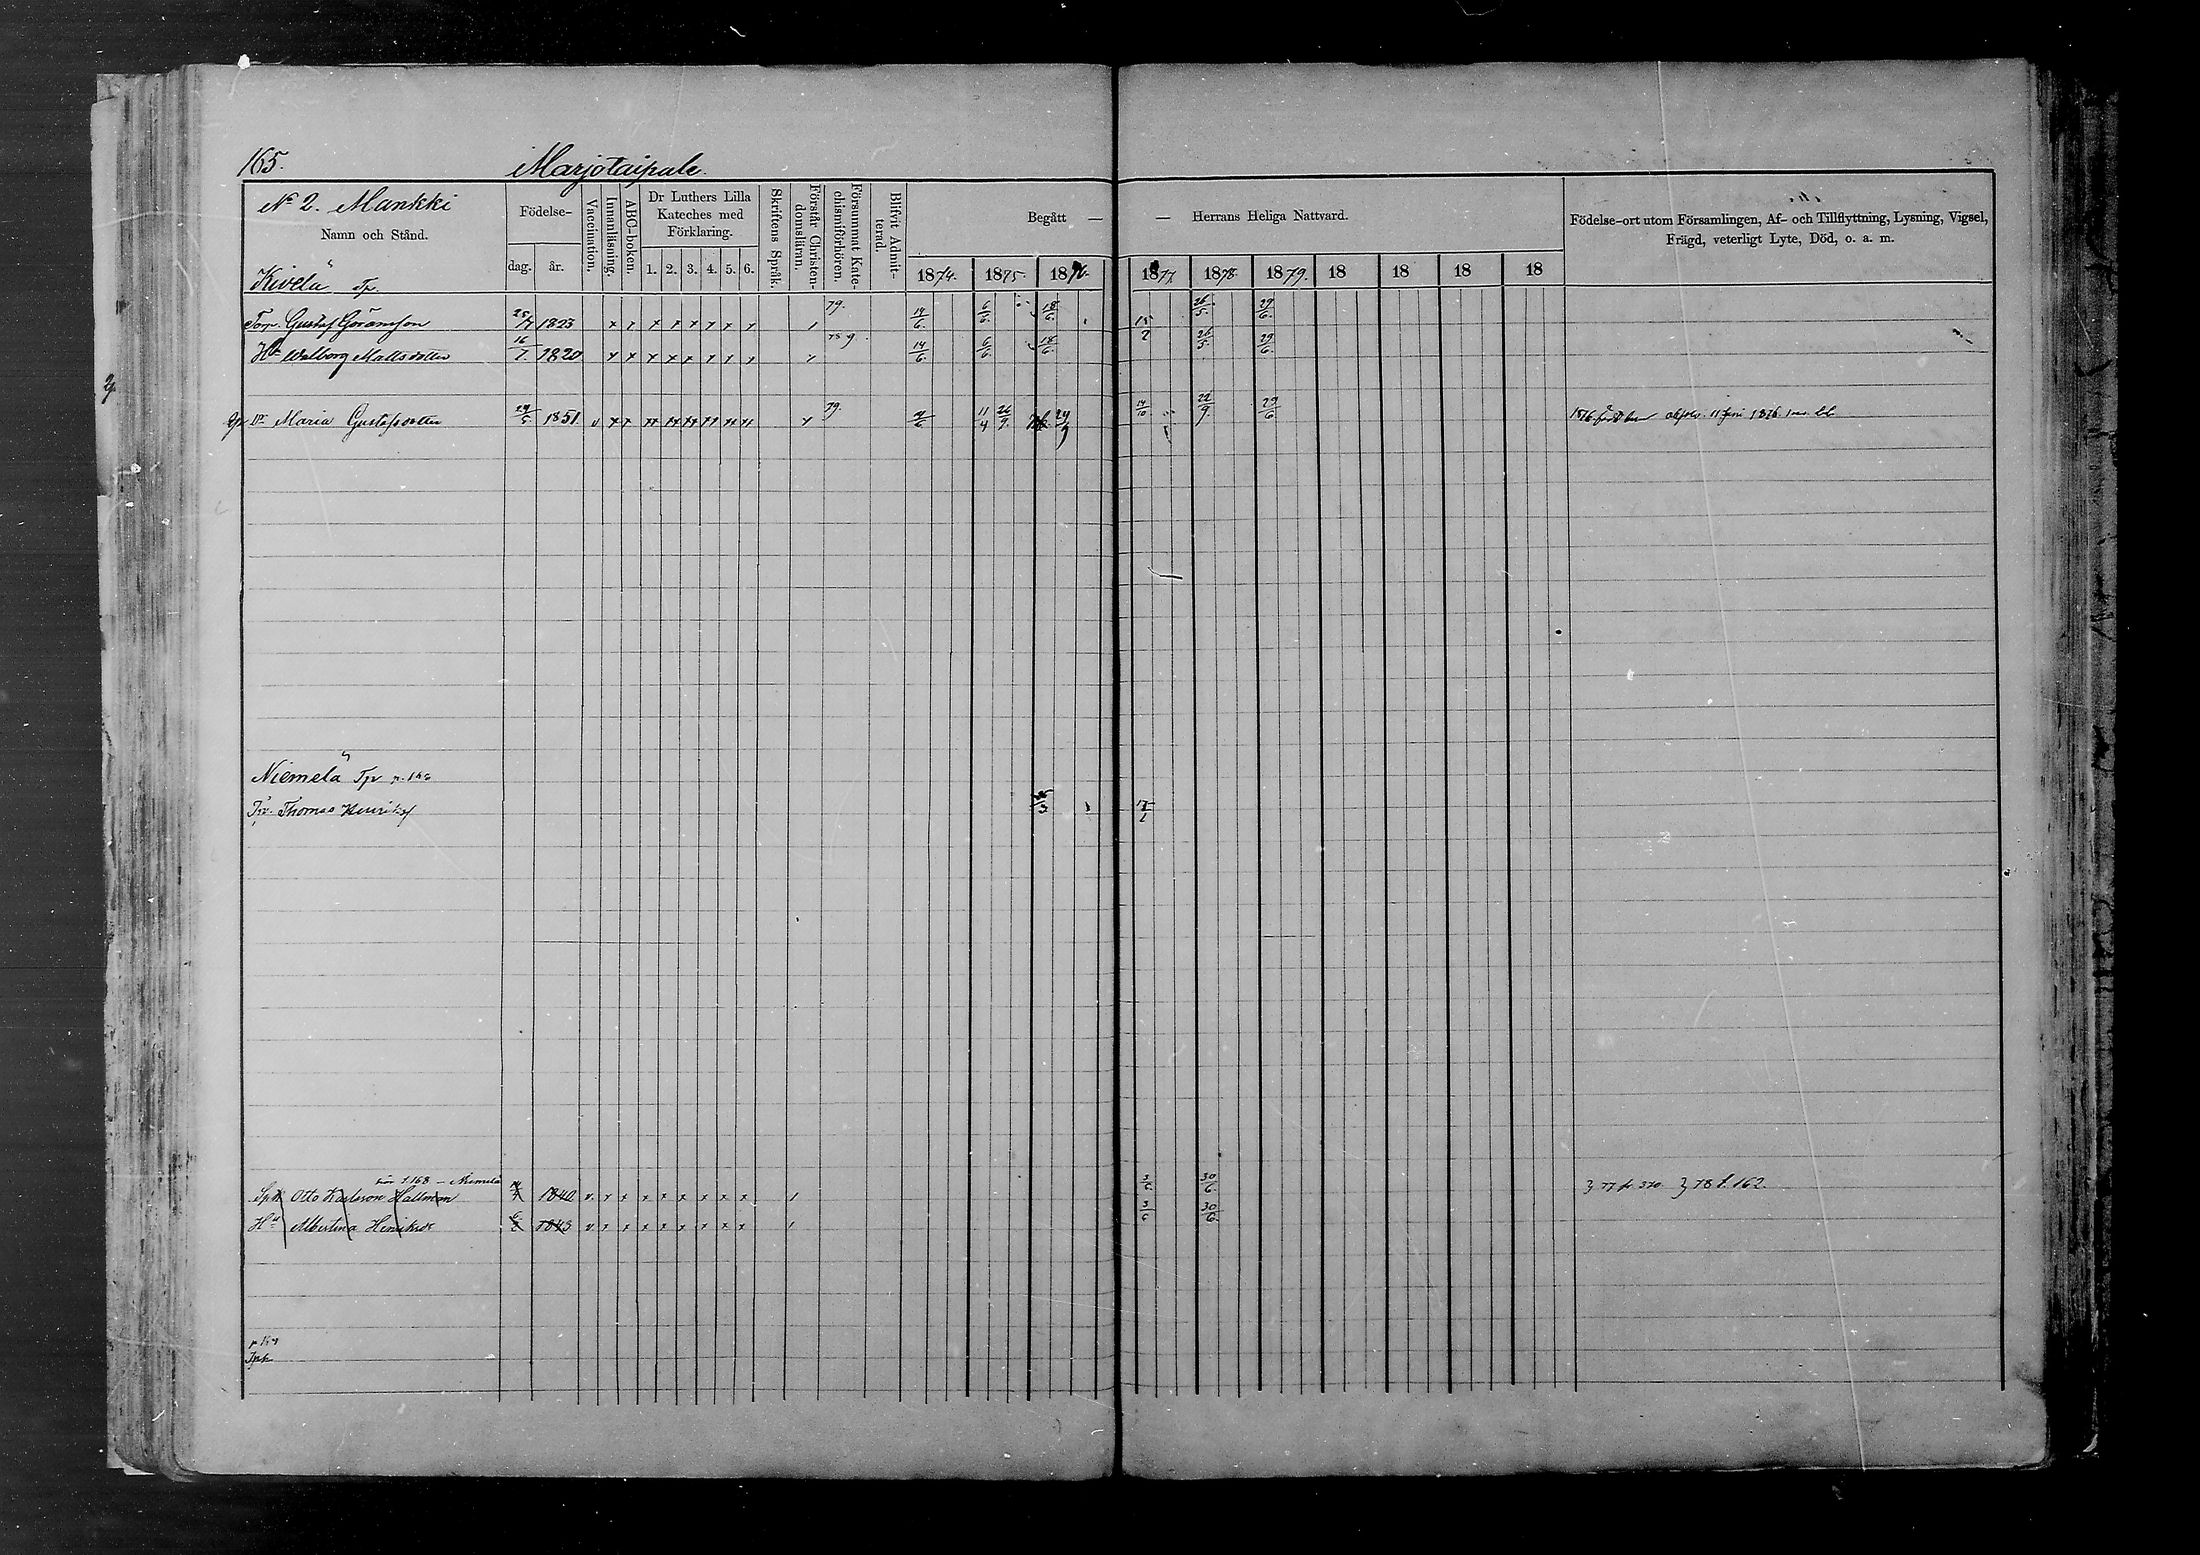 165. Marjotaipale.
No 2. Mankki
Namn och Stånd.
Födelse-
dag. år.
Vaccination.
Innanläsning.
ABC-boken.
Dr Luthers Lilla Kateches med Förklaring.
1. 2. 3. 4. 5. 6.
Skriftens Språk.
Förstår Christendomsläran.
Försummat Katechismiförhören.
Blifvit Admitterad.
Begått — — Herrans Heliga Nattvard.
1874. 1875. 1876. 1877. 1878. 1879. 18 18 18 18
Födelse-ort utom Församlingen, Af- och Tillflyttning, Lysning, Vigsel,
Frägd, veterligt Lyte, Död, o. a. m.
Kivelä Tp.
Torp. Gustaf Göransson 1823 x x x x x x x x 79. 14/6. 6/6. 18/6. 15/2 26/5. 29/6.
Hu Walborg Mattsdotter 16/7. 1820 x x x x x x x x 14/6. 6/6. 18/6. 26/5. 29/6.
Dr Maria Gustafsdotter 29/5 1851 v x x x x x x x x 79. 11/4 26/9. 14/10. 22/9. 29/6 1876 absolv. 11 Juni 1876.
Niemelä Tp
Tp. Thomas Henriksf
Otto Karlsson Hallman 1840 v x x x x x x x x 3/6 30/6. 77 fr. 370. 78 t. 162.
Hu Albertina Henriksdr 1843 v x x x x x x x x 30/6.